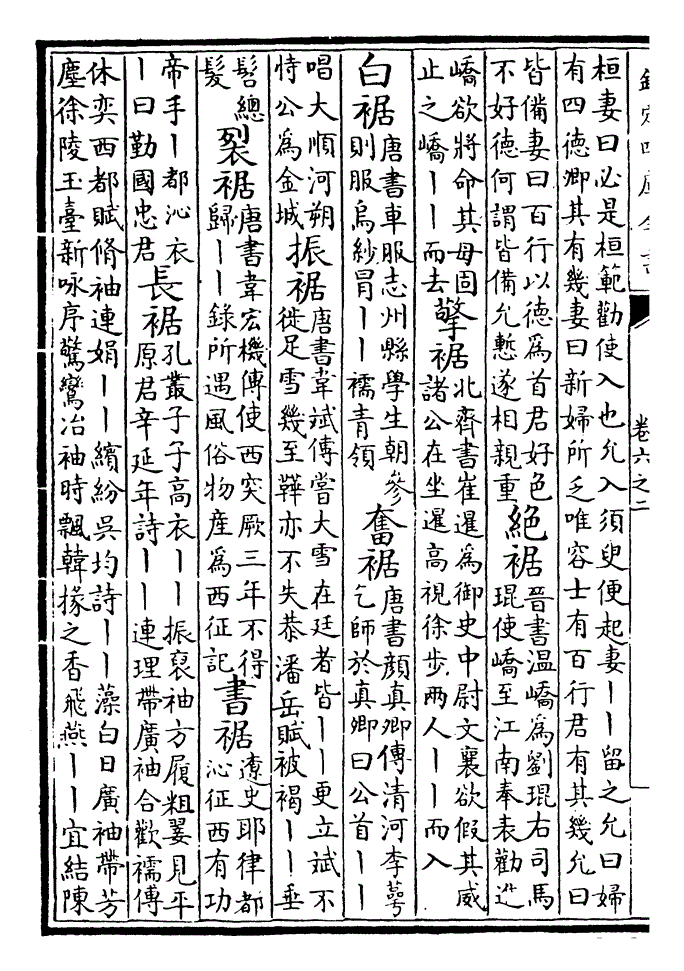 欽定四庫全書
卷六之二
桓妻曰必是桓範勸使入也允入須臾便起妻｜｜留之允曰婦
有四德卿其有幾妻曰新婦所乏唯容士有百行君有其幾允曰
皆備妻曰百行以德為首君好色
不好德何謂皆備允慙遂相親重
絶裾
晉書温嶠為劉琨右司馬
琨使嶠至江南奉表勸進
嶠欲將命其母固
止之嶠｜｜而去
擎裾
北齊書崔暹為御史中尉文襄欲假其威
諸公在坐暹高視徐步两人｜｜而入
白裾
唐書車服志州縣學生朝參
則服烏紗冒｜｜襦青領
奮裾
唐書顔真卿傳清河李蕚
乞師於真卿曰公首｜｜
唱大順河朔
恃公為金城
振裾
唐書韋斌傳嘗大雪在廷者皆｜｜更立斌不
徙足雪幾至鞾亦不失恭潘岳賦被褐｜｜垂
髫總
髮
裂裾
唐書韋宏機傳使西突厥三年不得
歸｜｜録所遇風俗物産為西征記
書裾
遼史耶律都
沁征西有功
帝手｜都沁衣
｜曰勤國忠君
長裾
孔叢子子高衣｜｜振裒袖方履粗翣見平
原君辛延年詩｜｜連理帶廣袖合歡襦傅
休奕西都賦脩袖連娟｜｜繽紛吳均詩｜｜藻白日廣袖帶芳
塵徐陵玉臺新咏序驚鸞冶袖時飄韓掾之香飛燕｜｜宜結陳